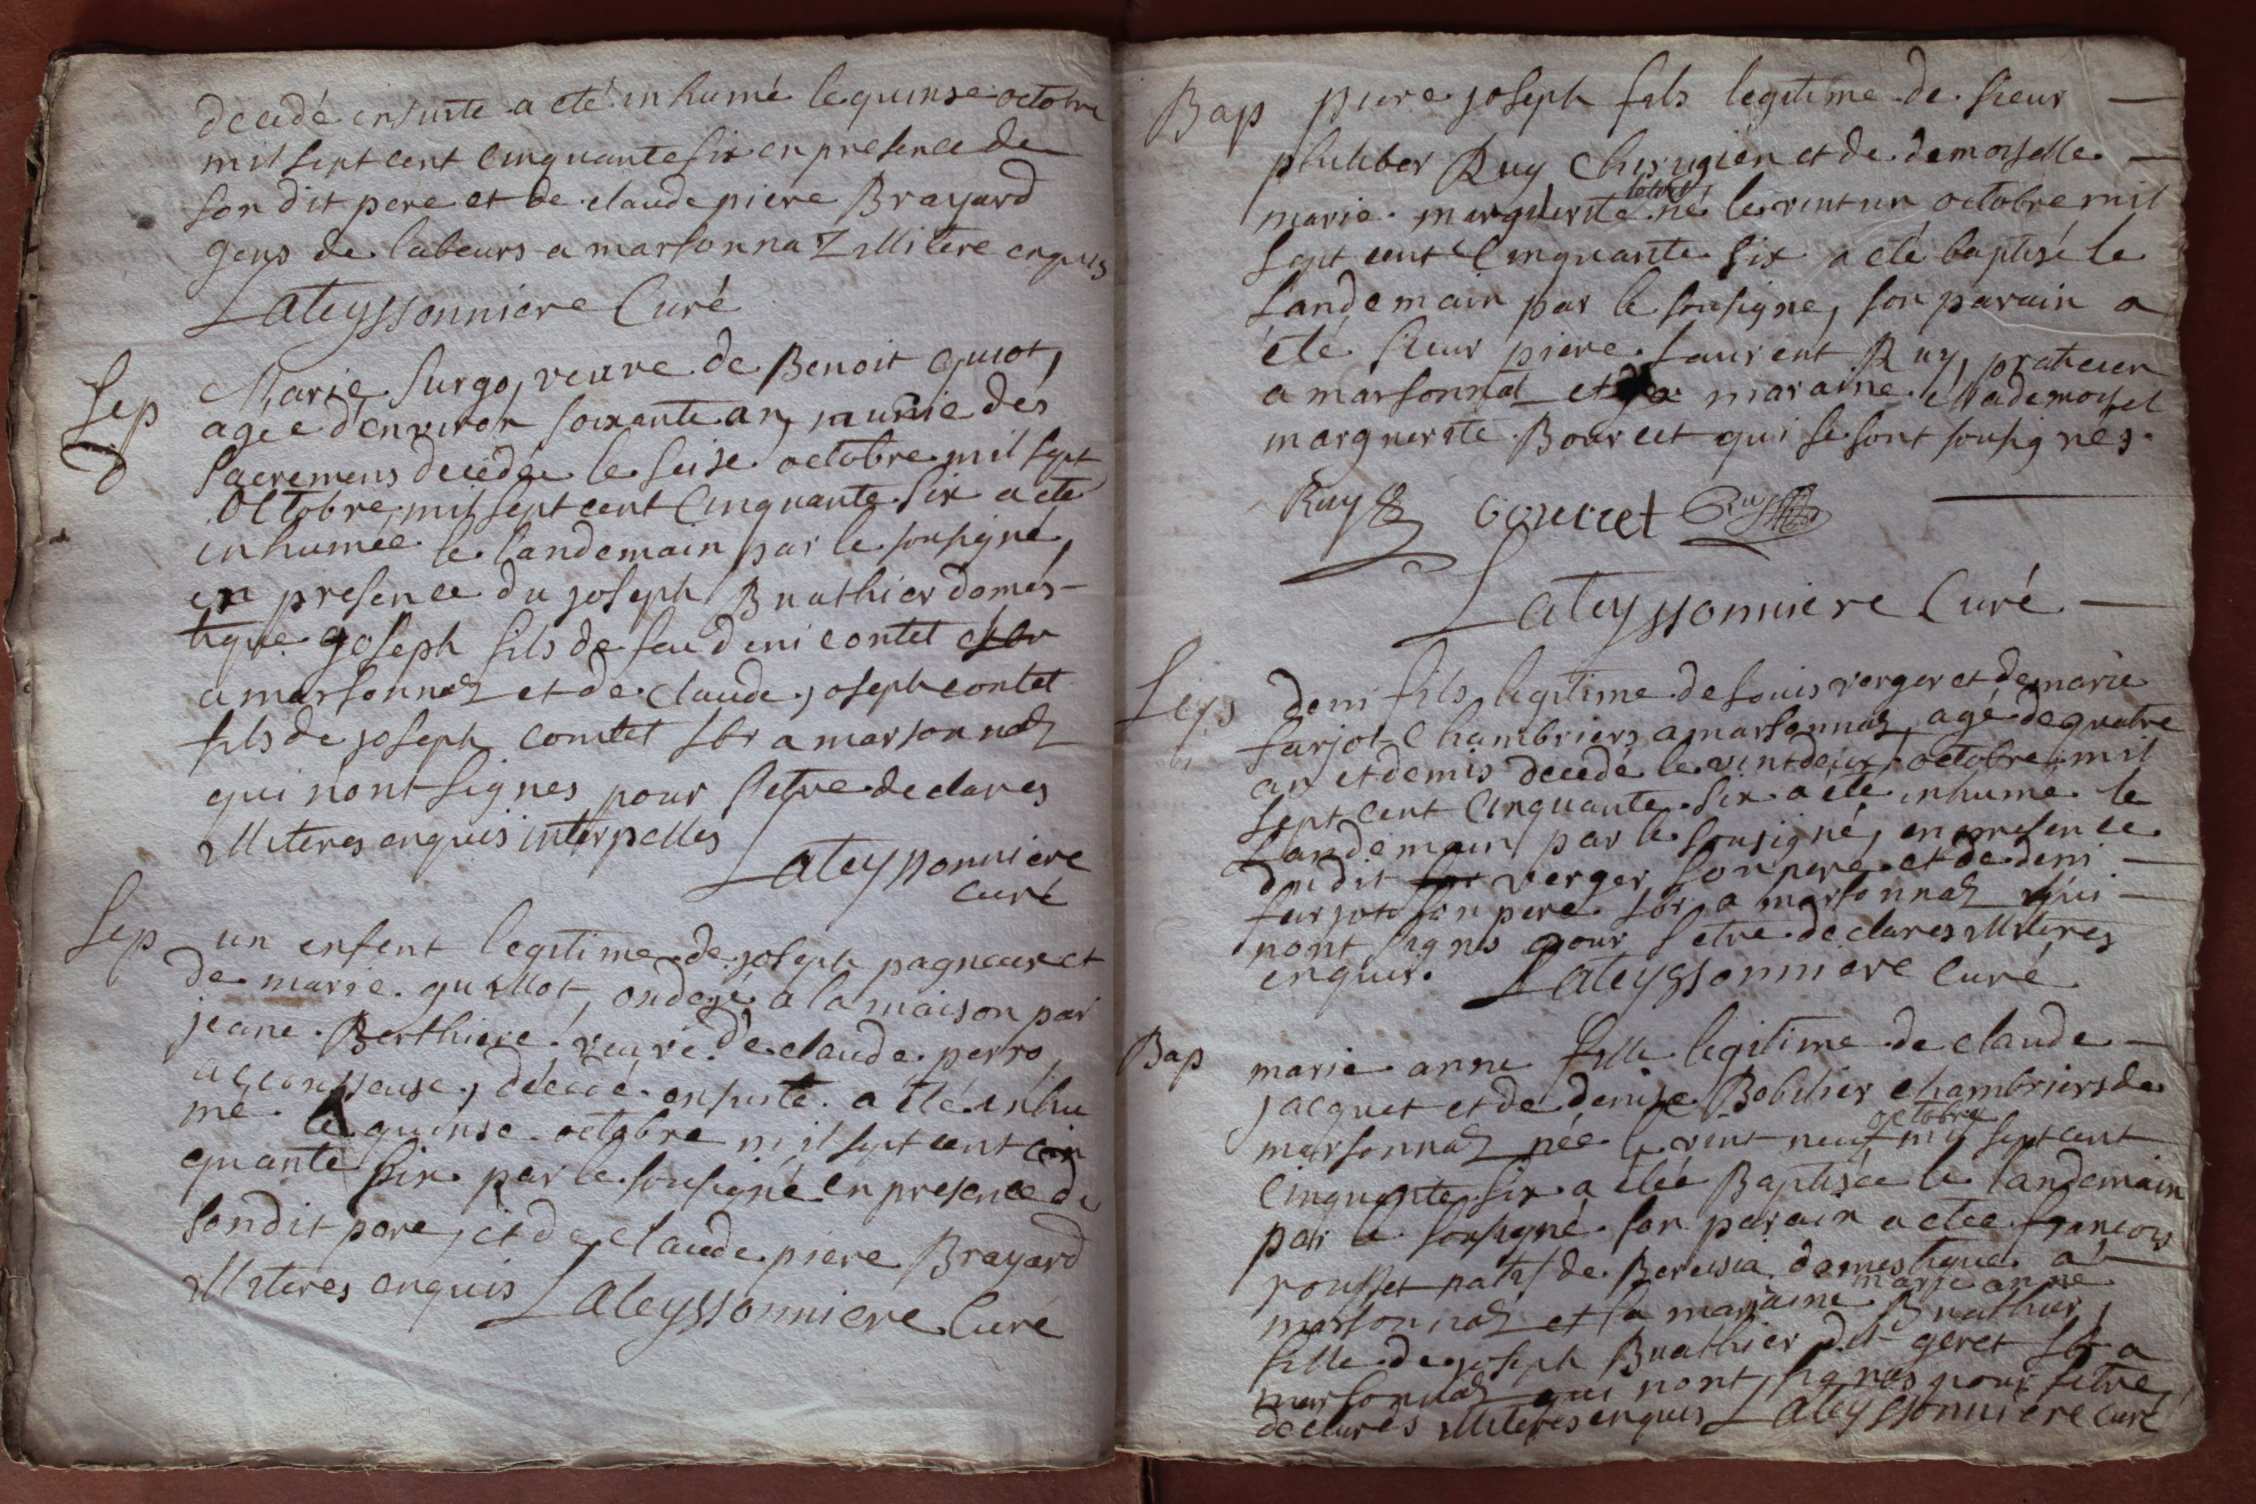 decedé ensuite a eté inhumé le quinse octobre
mil sept cent cinquante six en presence de
son dit pere et de claude piere Brayard
gens de labeurs a marsonnaz illitere enquis
Lateyssonniere Curé
Sep
Marie Surgo, veuve de Benoit Guiot,
agée d'environ soixante an, munie des
sacremens decedée le seise octobre mil sept
Octobre mil sept cent cinquante six a eté
inhumée le landemain par le sousigné,
en presence du joseph Buathier domes-
tique joseph fils de feu deni contet
a marsonnaz et de claude joseph contet
fils de joseph comtet sbr a marsonnaz
qui nont signes pour setre declares
illiteres enquis interpelles
Lateyssonniere
curé
Sep
un enfent legitime de joseph pagneux et
de marie guillot, ondoyé a la maison par
jeane Berthiere veuve de claude perro,
accousseuse, décedé ensuite a eté inhu
mé le quinse octobre mil sept cent cin
quante six par le sousigné en presence de
son dit pere, et de claude piere Brayard
illiteres enquis Lateyssonniere Curé
Bap
piere joseph fils legitime de sieur
philiber Ruy Chirugien et de demoiselle
marie marguerite né le vint un octobre mil
sept cent cinquante six a eté baptisé le
landemain par le sousigne, son parain a
été sieur piere laurent Ruy, praticien
a marsonnat et sa maraine Mademoisel
marguerite Bourcet qui se sont sousignes.
Ruy Gourcet Ruy
Lateyssonniere Curé
Seps
deni fils legitime de louis verger et de marie
farjot Chambriers a marsonnaz, agé de quatre
an et demis decedé le vint deux octobre mil
sept cent cinquante six a eté inhumé le
Landemain par le sousigné, en presence
du dit verger son pere et de deni
farjot son pere sbr a marsonnaz qui
nont signés pour setre declares illiteres
enquis. Lateyssonniere Curé
Bap
marie anne fille legitime de claude
jacquet et de denise Bobilier chambriers de
octobre
marsonnaz née le vint neuf mil sept cent
cinquante six a étée Baptisée le landemain
par le sousigné son parain a etee francois
rousset natif de Bereisia domestique a
marie anne
marsonnaz et la maraine Buathier,
fille de joseph Buathier dit geret sbr a
marsonnaz qui nont signés pour setre
declarés illiteres enquis Lateyssonniere curé